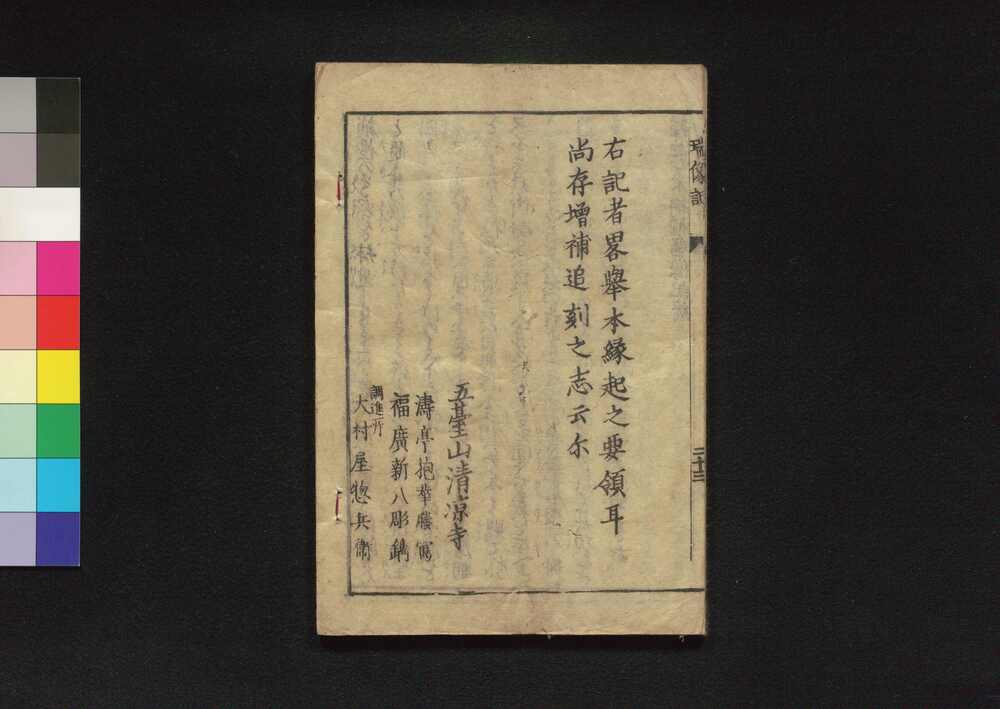 瑞像記
二十三
右記者畧舉本縁起之要領耳
尚存增補追刻之志云尓
五臺山清凉寺
濤亭抱華謄寫
福廣新八彫鐫
調進所
大村屋惣兵衛